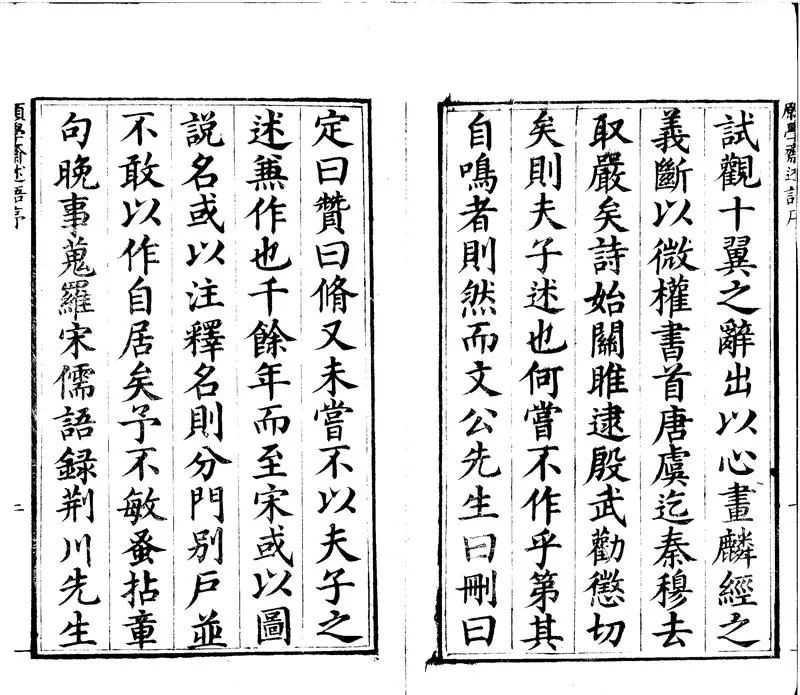 試觀十翼之辭出以心畫麟經之
義斷以微權書首唐虞迄秦穆去
取嚴矣詩始關雎逮殷武勸懲切
矣則夫子述也何嘗不作乎第其
自鳴者則然而文公先生曰刪曰
定曰贊曰脩又未嘗不以夫子之
述兼作也千餘年而至宋或以圖
說名或以注釋名則分門別戶並
不敢以作自居矣予不敏蚤拈章
句晚事蒐羅宋儒語録荆川先生
願學齋述語序
二